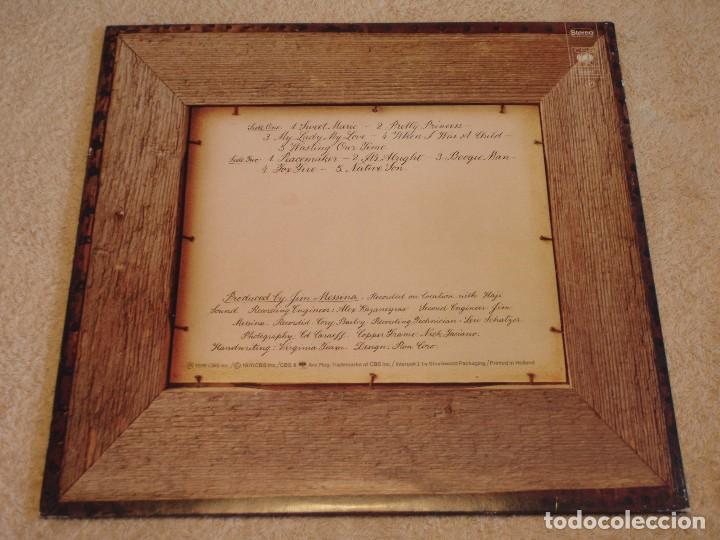 Stereo
CBS
Side One 1. Sweet Marie – 2. Pretty Princess –
3 My Lady, My Love – 4 When I Was A Child –
5 Wasting Our Time
Side Two 1. Peacemaker – 2. It's Alright – 3. Boogie Man –
4. Fox Fire – 5. Native Son.
Produced by Jim Messina. Recorded on location with Haji
Sound. Recording Engineer: Alex Kazanegras Second Engineer: Jim
Messina. Recordist: Corey Bailey Recording Technician: Lou Schatzer
Photography: Ed Caraeff Copper Frame: Nick Fasiano.
Handwriting: Virginia Team Design: Ron Coro.
1976 CBS Inc. / © 1976 CBS Inc. / CBS & Are Reg. Trademarks of CBS Inc. / Interpak 1 by Shorewood Packaging / Printed in Holland
todocoleccion
todocoleccion.net